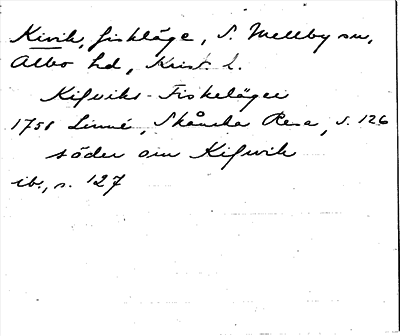 Kivik, fiskläge, S. Mellby sn,
Albo hd, Krist. l.
Kifviks-Fiskeläger
1751 Linné, Skånska Resa, s. 126
söder om Kifwik
ib., s. 127